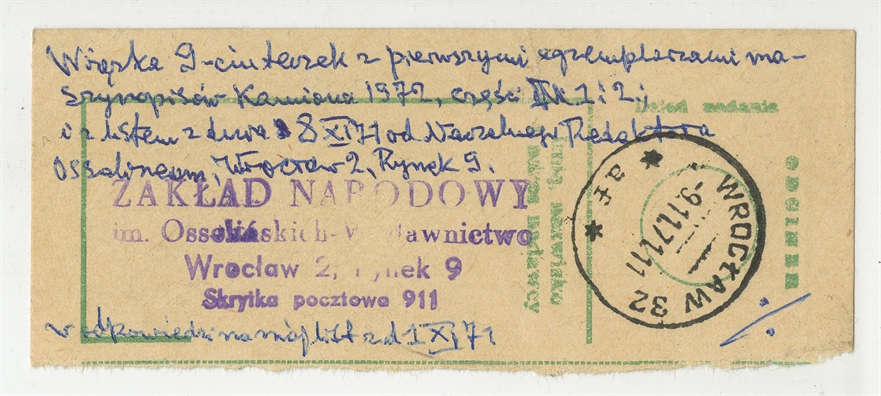 Wiązka 9-ciu teczek z pierwszymi egzemplarzami ma-
szynopisów Kamiona 1972, część III 1 i 2 i
i z listem z dnia 8 XI 71 od Naczelnego Redaktora
Ossolineum, Wrocław 2, Rynek 9.
ZAKŁAD NARODOWY
im. Ossolińskich-Wydawnictwo
Wrocław 2, Rynek 9
Skrytka pocztowa 911
w odpowiedzi na mój list z d 1 XI 71
WROCŁAW 32
* a F *
-9.11.71.11
ODCINEK
Dzień nadania
Imię, nazwisko
nadawcy